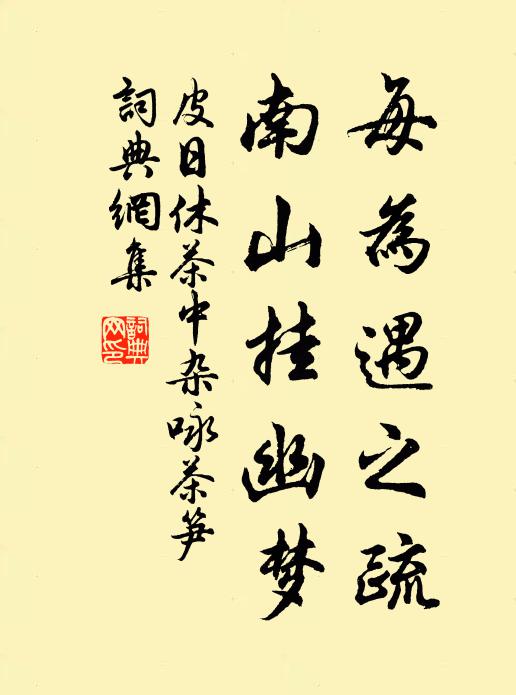 每為遇之疏
南山挂幽梦
皮日休茶中杂咏茶笋
詞典網集
詞典網印